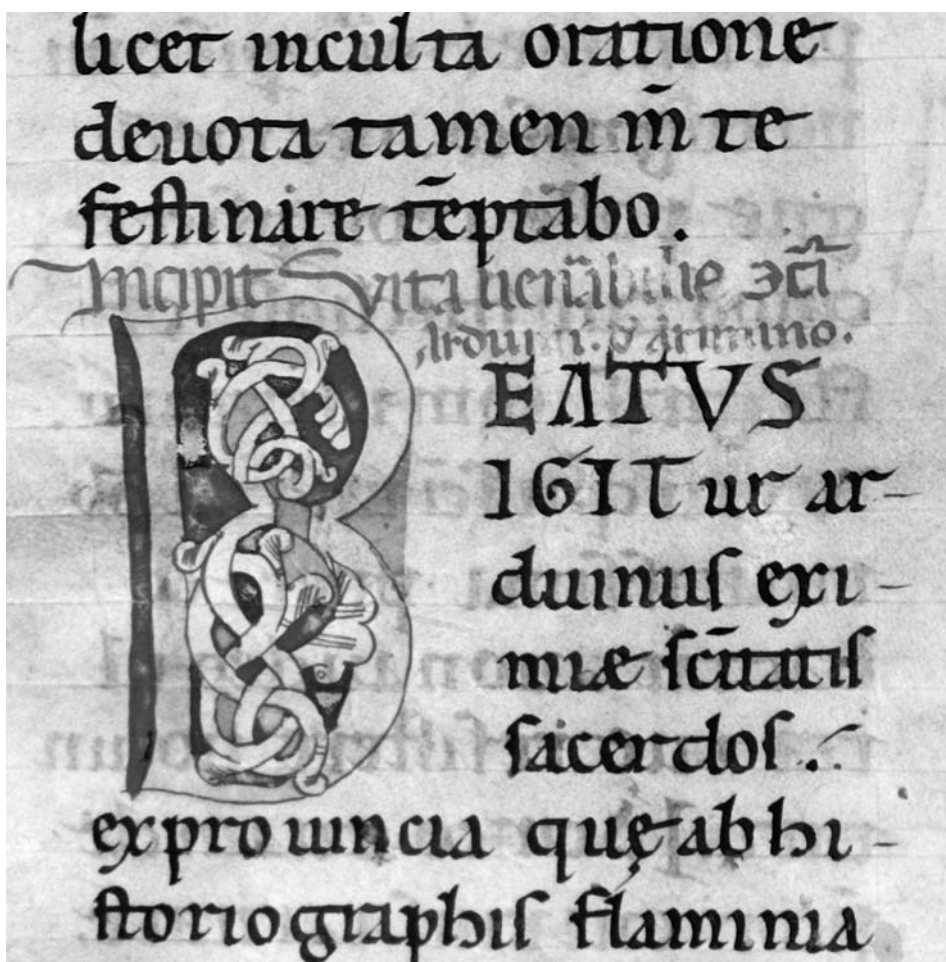 licet inculta oratione
deuota tamen m̄ te
festinare te̅ptabo.
Incipit vita uen̅abilis
Arduini
BEATUS
IGITur ar-
duinus exi-
miæ sc̅itatis
sacerdos.
ex prouincia quę ab hi-
storiographis flaminia